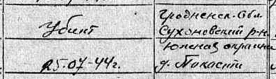 Убит
25.07-44г.
Гродненск. обл
Сухоновский р-н
Южная окраина
д. Микасти